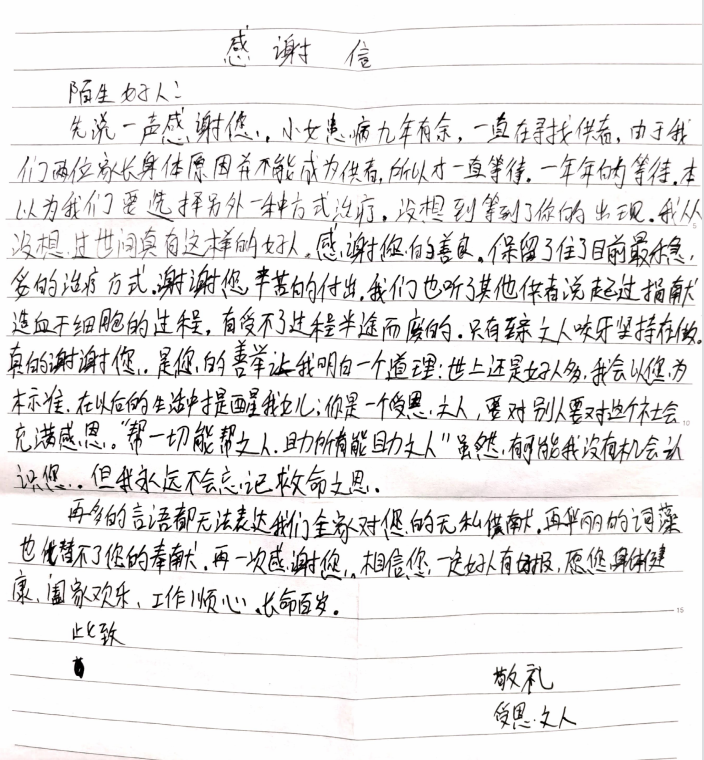 感谢信
陌生好人：
先说一声感谢您。小女患病九年有余，一直在寻找供者，由于我
们两位家长身体原因并不能成为供者，所以才一直等待。一年年的等待。本
以为我们要选择另外一种方式治疗。没想到等到了你的出现。我从
没想过世间真有这样的好人。感谢您的善良。保留了住了目前最
多的治疗方式。谢谢您辛苦的付出。我们也听了其他供者说起过捐献
造血干细胞的过程，有受不了过程半途而废的。只有亲人咬牙坚持在做。
真的谢谢您。是您的善举让我明白一个道理：世上还是好人多，我会以您为
标准，在以后的生活中提醒我女儿；你是一个受恩之人，要对别人要对这个社会
充满感恩。“帮一切能帮之人，助所有能助之人”虽然，有可能我没有机会认
识您。但我永远不会忘记救命之恩。
再多的言语都无法表达我们全家对您的无私供献。再华丽的词藻
也代替不了您的奉献。再一次感谢您，相信您一定好人有好报，愿您身体健
康、阖家欢乐、工作顺心、长命百岁。
此致
敬礼
受恩之人
5
10
15